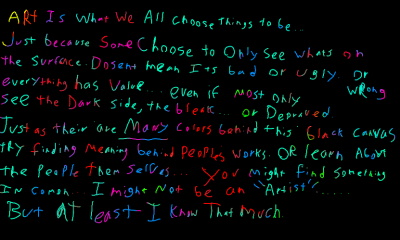 ARt Is What We All Choose Things to be...
Just because Some Choose to Only See whats on
the Surface. Dosent mean Its bad or Ugly. Or Wrong
everything has Value..... even if most only
see the Dark Side, the bleak... or Depraved
Just as their are Many Colors behind this black canvas
try finding Meaning behind Peoples works. OR learn About
the People them Selves.... You might find Something
In Comon.... I might Not be an "Artist"......
But At least I Know That Much.